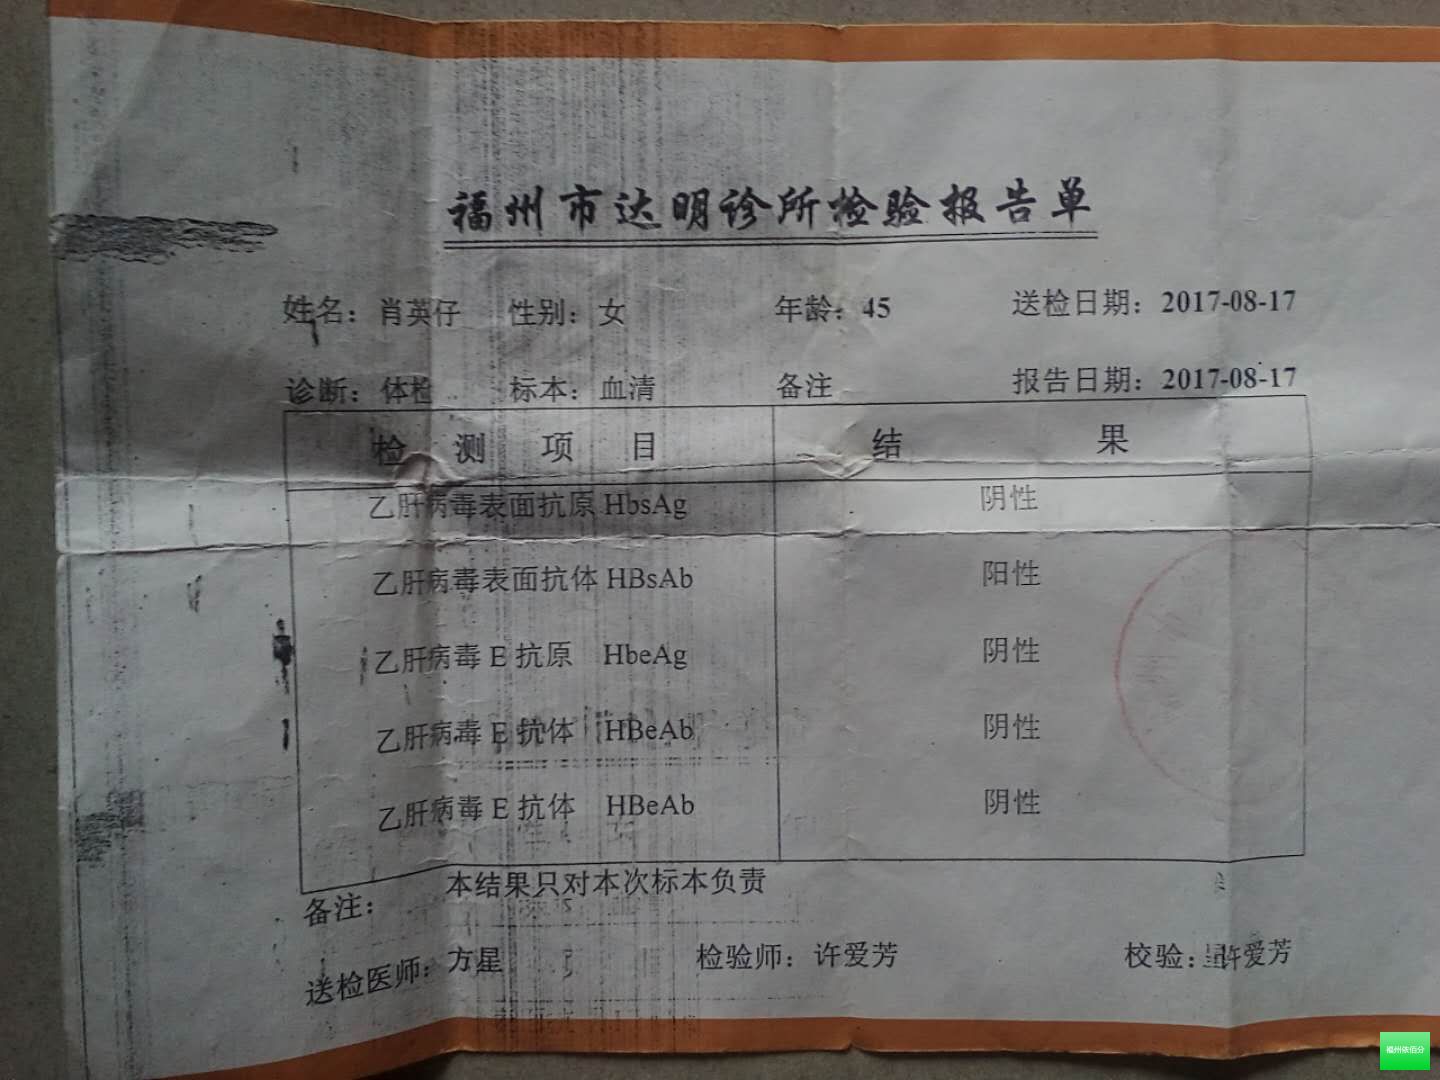 福州市达明诊所检验报告单
姓名：肖英仔 性别：女 年龄：45 送检日期：2017-08-17
诊断：体检 标本：血清 备注 报告日期：2017-08-17
检测项目 结果
乙肝病毒表面抗原 HbsAg 阴性
乙肝病毒表面抗体 HBsAb 阳性
乙肝病毒 E 抗原 HbeAg 阴性
乙肝病毒 E 抗体 HBeAb 阴性
乙肝病毒 E 抗体 HBeAb 阴性
备注： 本结果只对本次标本负责
送检医师：方星 检验师：许爱芳 校验：许爱芳
福州依佰分